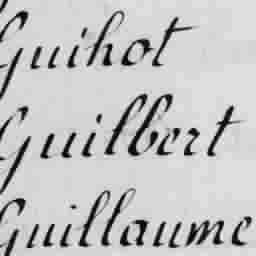 Guihot
Guilbert
Guillaume